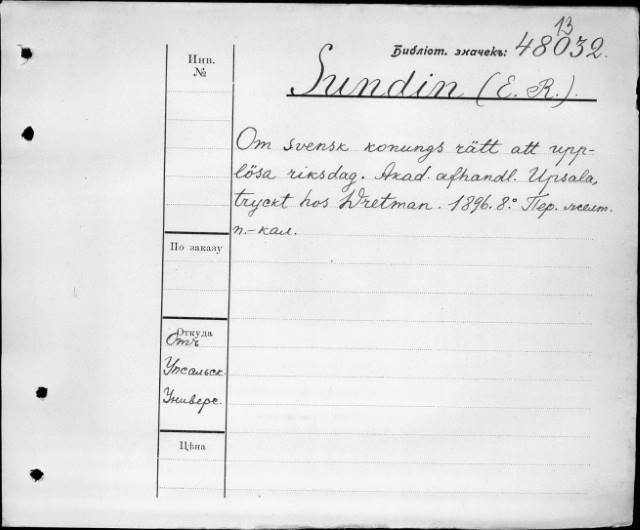 13
Библіот. значекъ: 48032.
Инв.
№
Sundin (E. R.).
Om svensk konungs rätt att upp-
lösa riksdag. Akad. afhandl. Upsala,
tryckt hos Wretman. 1896. 8.° Пер. желт.
п.-кал.
По заказу
Откуда
Отъ
Упсальск.
Универс.
Цѣна